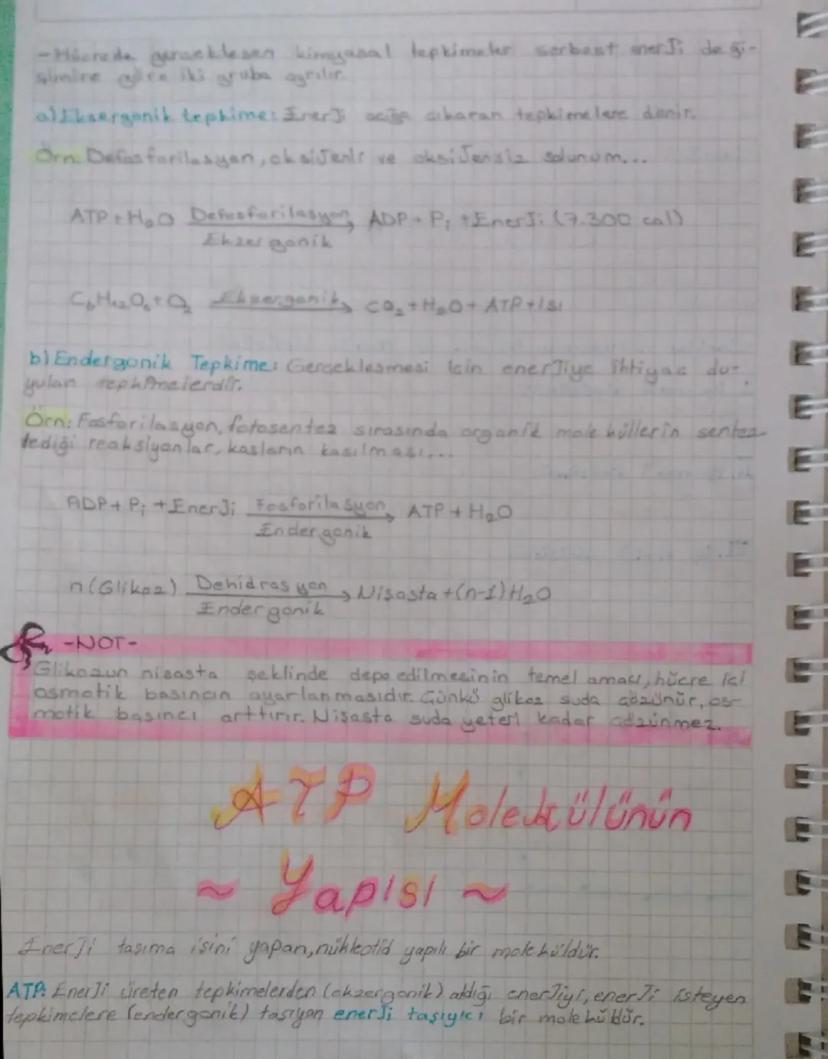 -Hücrede gerçekleşen kimyasal tepkimeler serbest enerji deği-
şimine göre iki gruba ayrılır.
a) Ekzergonik tepkime: Enerji açığa çıkaran tepkimelere denir.
Örn: Defosforilasyon, oksijenli ve oksijensiz solunum...
ATP + H₂O Defosforilasyon ADP + Pi + Enerji (7.300 cal)
Ekzergonik
C₆H₁₂O₆ + O₂ Ekzergonik CO₂ + H₂O + ATP + Isı
b) Endergonik Tepkime: Gerçekleşmesi için enerjiye ihtiyaç du-
yulan tepkimelerdir.
Örn: Fosforilasyon, fotosentez sırasında organik moleküllerin sentez-
lediği reaksiyonlar, kasların kasılması...
ADP + Pi + Enerji Fosforilasyon ATP + H₂O
Endergonik
n(Glikoz) Dehidrasyon Nişasta + (n-1) H₂O
Endergonik
-NOT-
Glikozun nişasta şeklinde depo edilmesinin temel amacı, hücre içi
osmotik basıncın ayarlanmasıdır. Çünkü glikoz suda çözünür, os-
motik basıncı arttırır. Nişasta suda yeteri kadar çözünmez.
ATP Molekülünün
~ Yapısı ~
Enerji taşıma işini yapan, nükleotid yapılı bir moleküldür.
ATP: Enerji üreten tepkimelerden (ekzergonik) aldığı enerjiyi, enerji isteyen
tepkimelere (endergonik) taşıyan enerji taşıyıcı bir moleküldür.